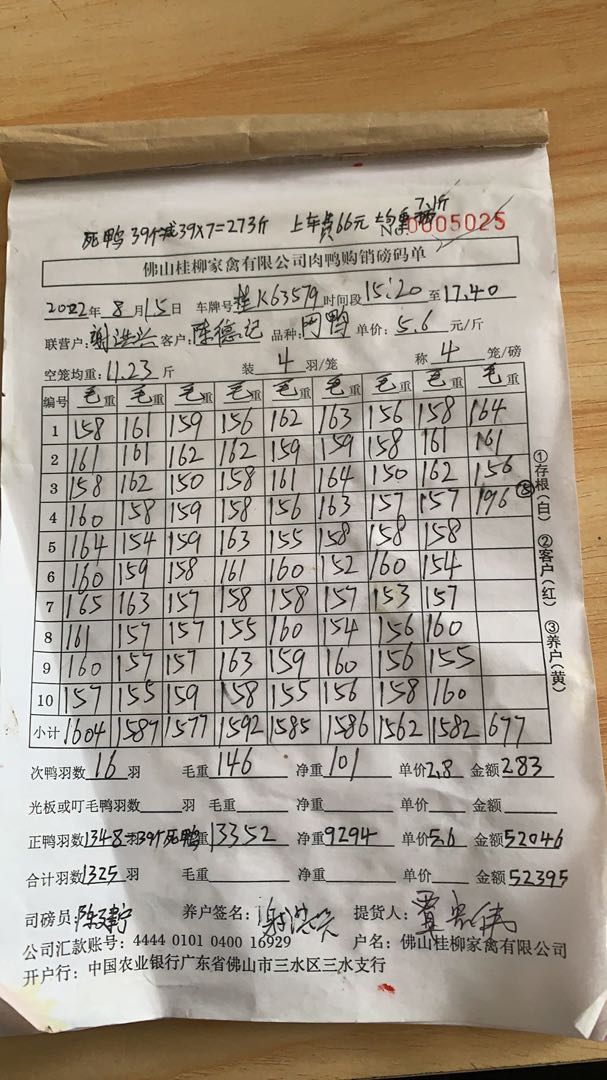 死鸭 39个减39×7=273斤 上车费66元 均重 7.1斤
No.0005025
佛山桂柳家禽有限公司肉鸭购销磅码单
2022年8月15日 车牌号桂K63579时间段15:20至17.40
联营户:谢浩兴 客户:陈德记 品种: 单价:5.6元/斤
空笼均重:11.23斤 装4羽/笼 称4笼/磅
编号 毛重 毛重 毛重 毛重 毛重 毛重 毛重 毛重 毛重
1 158 161 159 156 162 163 156 158 164
2 161 161 162 162 159 159 158 161 161
3 158 162 150 158 161 164 150 162 156
4 160 158 159 158 156 163 157 157 196 ⑤
5 164 154 159 163 155 158 158 158
6 160 159 158 161 160 152 160 154
7 165 163 157 158 158 157 153 157
8 161 157 157 155 160 154 156 160
9 160 157 157 163 159 160 156 155
10 157 155 159 158 155 156 158 160
小计 1604 1587 1577 1592 1585 1586 1562 1582 677
①存根(白) ②客户(红) ③养户(黄)
次鸭羽数16羽 毛重146 净重101 单价2.8 金额283
光板或叮毛鸭羽数 羽 毛重 净重 单价 金额
正鸭羽数1348羽39个死鸭重13352 净重9294 单价5.6 金额52046
合计羽数1325羽 毛重 净重 单价 金额52395
司磅员: 养户签名:谢浩兴 提货人:
公司汇款账号: 4444 0101 0400 16929 户名: 佛山桂柳家禽有限公司
开户行: 中国农业银行广东省佛山市三水区三水支行